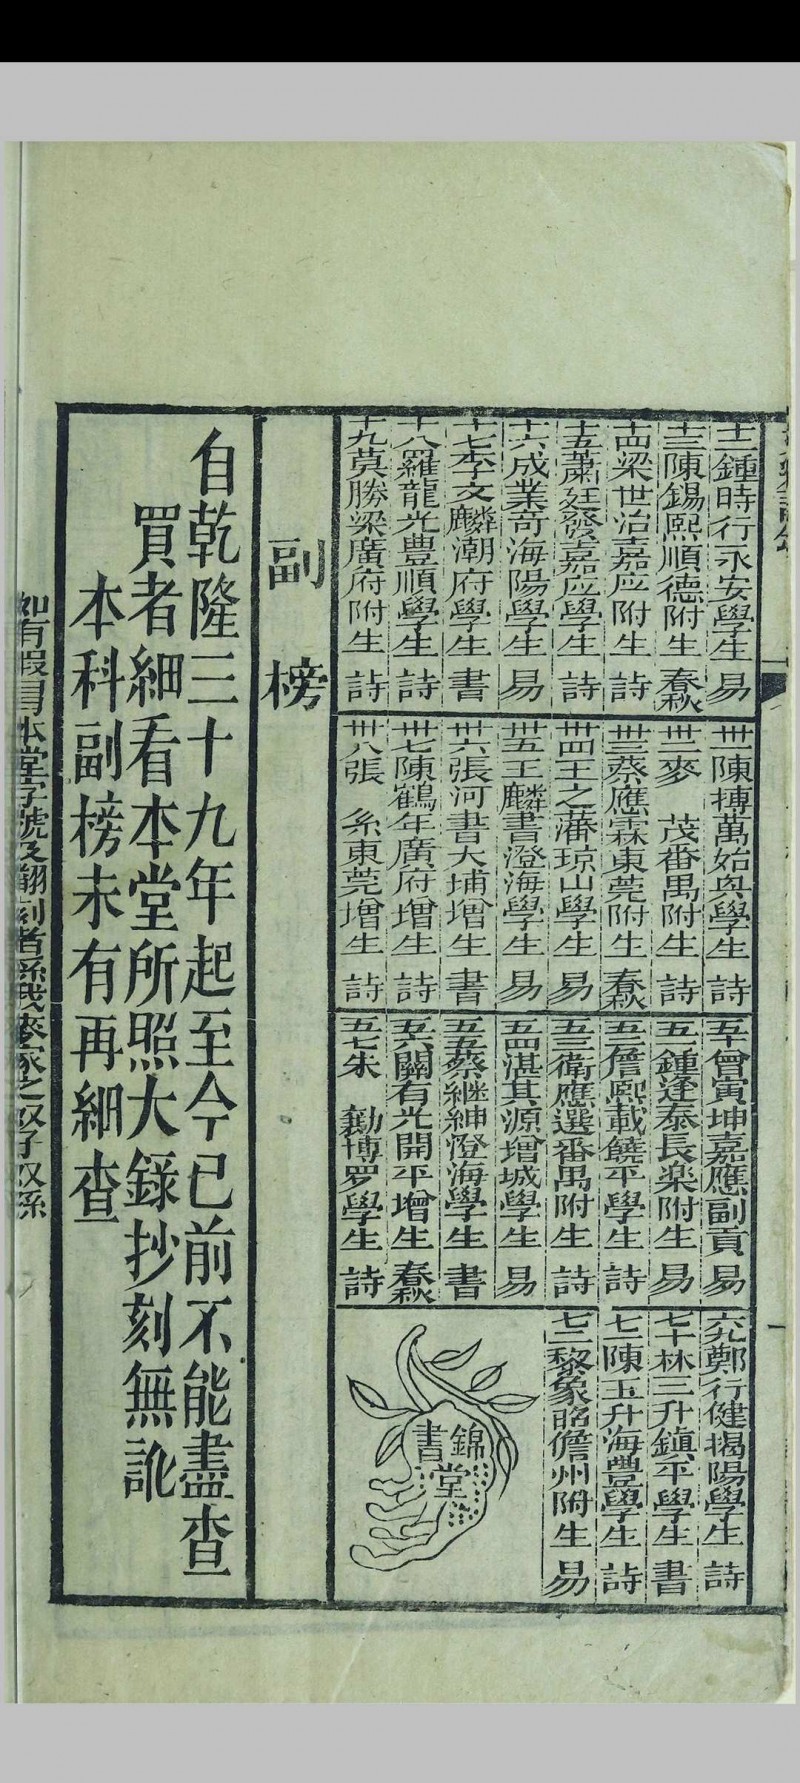 十二鍾時行永安學生 易
十三陳錫熙順德附生 春秋
十四梁世治嘉应附生 詩
十五蕭廷發嘉应學生 詩
十六成業奇海陽學生 易
十七李文麟潮府學生 書
十八羅龍光豊順學生 詩
十九莫勝梁廣府附生 詩
卅一陳摶萬始兴學生 詩
卅二麥 茂番禺附生 詩
卅三蔡應霖東莞附生 春秋
卅四王之藩琼山學生 易
卅五王麟書澄海學生 易
卅六張河書大埔增生 書
卅七陳鶴年廣府增生 詩
卅八張 糸東莞增生 詩
五十曾寅坤嘉應副貢 易
五一鍾逢泰長楽附生 易
五二詹熙載饒平學生 詩
五三衛應選番禺附生 詩
五四湛其源增城學生 易
五五蔡継紳澄海學生 書
五六關有光開平增生 春秋
五七朱 勷博罗學生 詩
六九鄭行健揭陽學生 詩
七十林三升鎮平學生 書
七一陳玉升海豐學生 詩
七二黎象昭儋州附生 易
錦書堂
副榜
自乾隆三十九年起至今已前不能盡查
買者細看本堂所照大錄抄刻無訛
本科副榜未有再細查
如有假冒本堂字號及翻刻者係我麥家之奴子奴孫